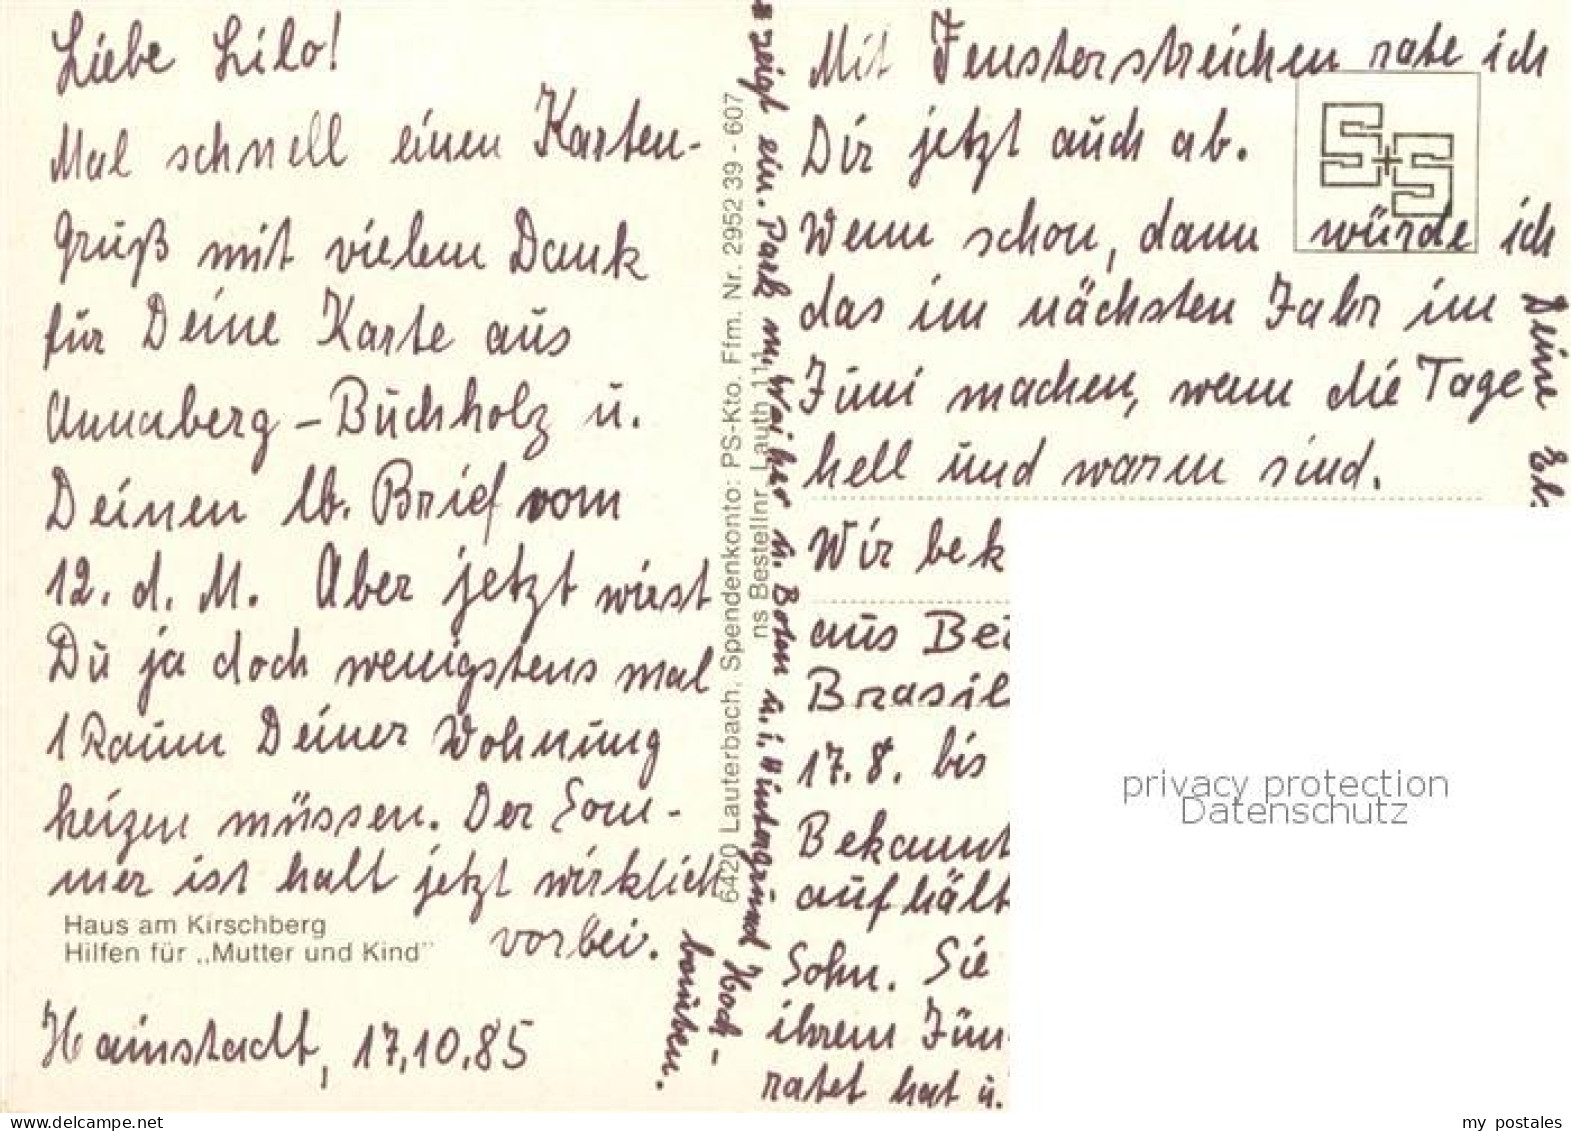 Liebe Lilo!
Mal schnell einen Karten-
gruß mit vielem Dank
für Deine Karte aus
Annaberg-Buchholz u.
Deinen lb. Brief vom
12. d. M. Aber jetzt wirst
Du ja doch wenigstens mal
1 Raum Deiner Wohnung
heizen müssen. Der Som-
mer ist halt jetzt wirklich
vorbei.
Haus am Kirschberg
Hilfen für „Mutter und Kind"
Hainstadt, 17.10.85
6420 Lauterbach, Spendenkonto: PS-Kto. Ffm. Nr. 2952 39 - 607
ns Bestellnr. Lauth 111
zeigt ein. Park m. Weiher u. Boten u. i. Hintergrund Hoch-
bauten.
Mit Fensterstreichen rate ich
Dir jetzt auch ab.
S+S
Wenn schon, dann würde ich
das im nächsten Jahr im
Juni machen, wenn die Tage
hell und warm sind.
Wir bek
aus Be
Brasil
17.8. bis
Bekannt
aufhält
Sohn. Sie
ihrem Jün
ratet hat u.
Deine
privacy protection
Datenschutz
delcampe.net
my_postales